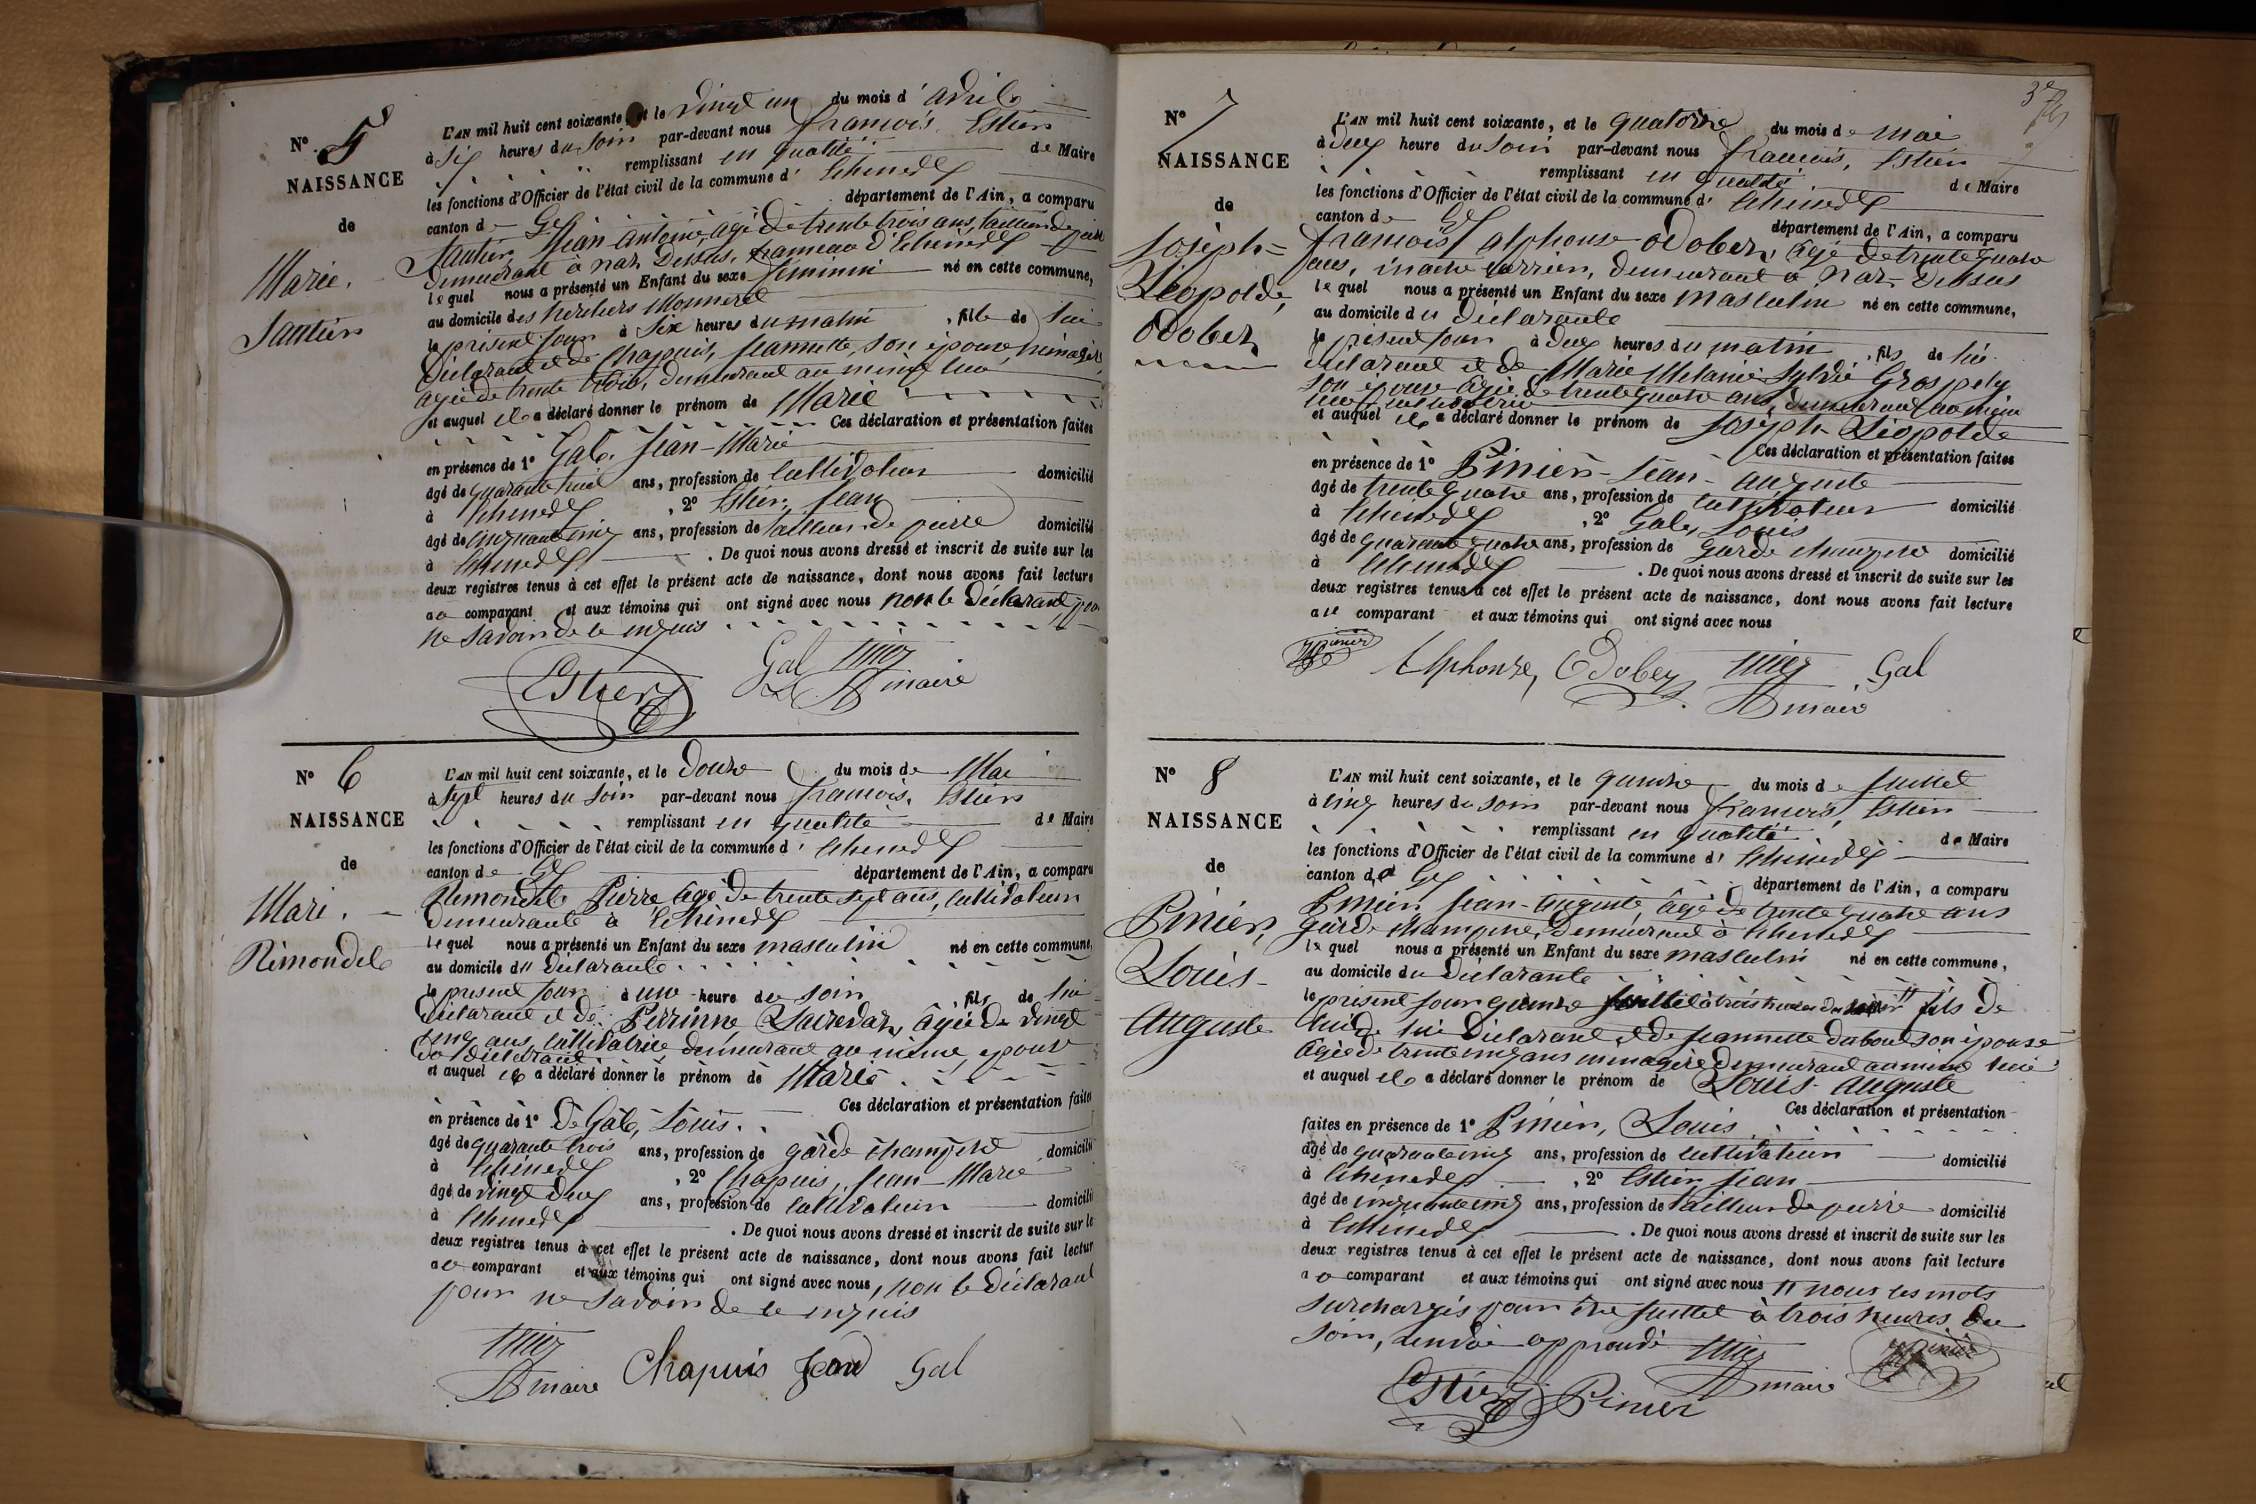 N° 5
NAISSANCE
de
Marie
Sautier
L'AN mil huit cent soixante, et le vingt un du mois d'avril
à six heures du soir par-devant nous françois Estier
remplissant en qualité de Maire
les fonctions d'Officier de l'état civil de la commune d'
canton de Gex département de l'Ain, a comparu
Sautier Jean-Antoine, agé de trente trois ans, tailleur de pierre
demeurant à nas Dessus, hameau d'
lequel nous a présenté un Enfant du sexe féminin né en cette commune,
au domicile des héritiers Monneret
le présent jour à six heures du matin, fille de lui
déclarant et de Chapuis, Jeannette, son épouse, ménagère
agée de trente trois, demeurant au même lieu
et auquel il a déclaré donner le prénom de Marie
Ces déclaration et présentation faites
en présence de 1° Gal. Jean-Marie
âgé de quarante huit ans, profession de cultivateur domicilié
à , 2° Estier, Jean
âgé de cinquante cinq ans, profession de tailleur de pierre domicilié
à . De quoi nous avons dressé et inscrit de suite sur les
deux registres tenus à cet effet le présent acte de naissance, dont nous avons fait lecture
au comparant et aux témoins qui ont signé avec nous non le déclarant pour
ne savoir de ce enquis
Estier Gal
maire
N° 6
NAISSANCE
de
Mari
Rémondet
L'AN mil huit cent soixante, et le douze du mois de Mai
à sept heures du soir par-devant nous françois, Estier
remplissant en qualité de Maire
les fonctions d'Officier de l'état civil de la commune d'
canton de Gex département de l'Ain, a comparu
Rémondet Pierre agé de trente sept ans, cultivateur
demeurant à
lequel nous a présenté un Enfant du sexe masculin né en cette commune,
au domicile du déclarante
le présent jour à une heure du soir, fils de lui
déclarant et de Perrinne agée de vingt
cinq ans, cultivatrice demeurant au même, épouse
du déclarant
et auquel il a déclaré donner le prénom de Marie
Ces déclaration et présentation faites
en présence de 1° De Gal, Louis
âgé de quarante trois ans, profession de garde champetre domicilié
à , 2° Chapuis, Jean-Marie
âgé de vingt deux ans, profession de cultivateur domicilié
à . De quoi nous avons dressé et inscrit de suite sur le
deux registres tenus à cet effet le présent acte de naissance, dont nous avons fait lectur
au comparant et aux témoins qui ont signé avec nous, non le déclarant
pour ne savoir de ce enquis
maire Chapuis Jean Gal
N° 7
NAISSANCE
de
Joseph=
Léopolde
Odobez
L'AN mil huit cent soixante, et le quatorze du mois de mai
à deux heure du soir par-devant nous françois, Estier
remplissant en qualité de Maire
les fonctions d'Officier de l'état civil de la commune d'
canton de Gex département de l'Ain, a comparu
françois alphonse Odobez, agé de trente quatre
ans, demeurant à nas-Dessus
lequel nous a présenté un Enfant du sexe masculin né en cette commune,
au domicile du déclarante
le présent jour à deux heures du matin, fils de lui
déclarant et de Marie Mélanie Sylvie
son épouse agée de trente quatre ans, demeurant au même
et auquel il a déclaré donner le prénom de Joseph Léopolde
Ces déclaration et présentation faites
en présence de 1° Pinier-Jean-auguste
âgé de trente quatre ans, profession de cultivateur domicilié
à , 2° Gal, Louis
âgé de quarante quatre ans, profession de garde champetre domicilié
à . De quoi nous avons dressé et inscrit de suite sur les
deux registres tenus à cet effet le présent acte de naissance, dont nous avons fait lecture
au comparant et aux témoins qui ont signé avec nous
Pinier Alphonse, Odobez Gal
maire
N° 8
NAISSANCE
de
Pinier,
Louis-
Auguste
L'AN mil huit cent soixante, et le quinze du mois de juillet
à cinq heures du soir par-devant nous françois, Estier
remplissant en qualité de Maire
les fonctions d'Officier de l'état civil de la commune d'
canton de Gex département de l'Ain, a comparu
Pinier, Jean-auguste, âgé de trente quatre ans
garde champetre, demeurant à
lequel nous a présenté un Enfant du sexe masculin né en cette commune,
au domicile du déclarante
le présent jour quinze juillet à trois heures du soir fils de
lui déclarant et de Jeannette son épouse
agée de trente cinq ans ménagère demeurant au même lieu
et auquel il a déclaré donner le prénom de Louis-Auguste
Ces déclaration et présentation
faites en présence de 1° Pinier, Louis
âgé de quarante cinq ans, profession de cultivateur domicilié
à , 2° Estier Jean
âgé de cinquante cinq ans, profession de tailleur de pierre domicilié
à . De quoi nous avons dressé et inscrit de suite sur les
deux registres tenus à cet effet le présent acte de naissance, dont nous avons fait lecture
au comparant et aux témoins qui ont signé avec nous nous les mots
surchargés pour être juillet à trois heures du
soir, renvoi approuvé
Estier Pinier maire Pinier